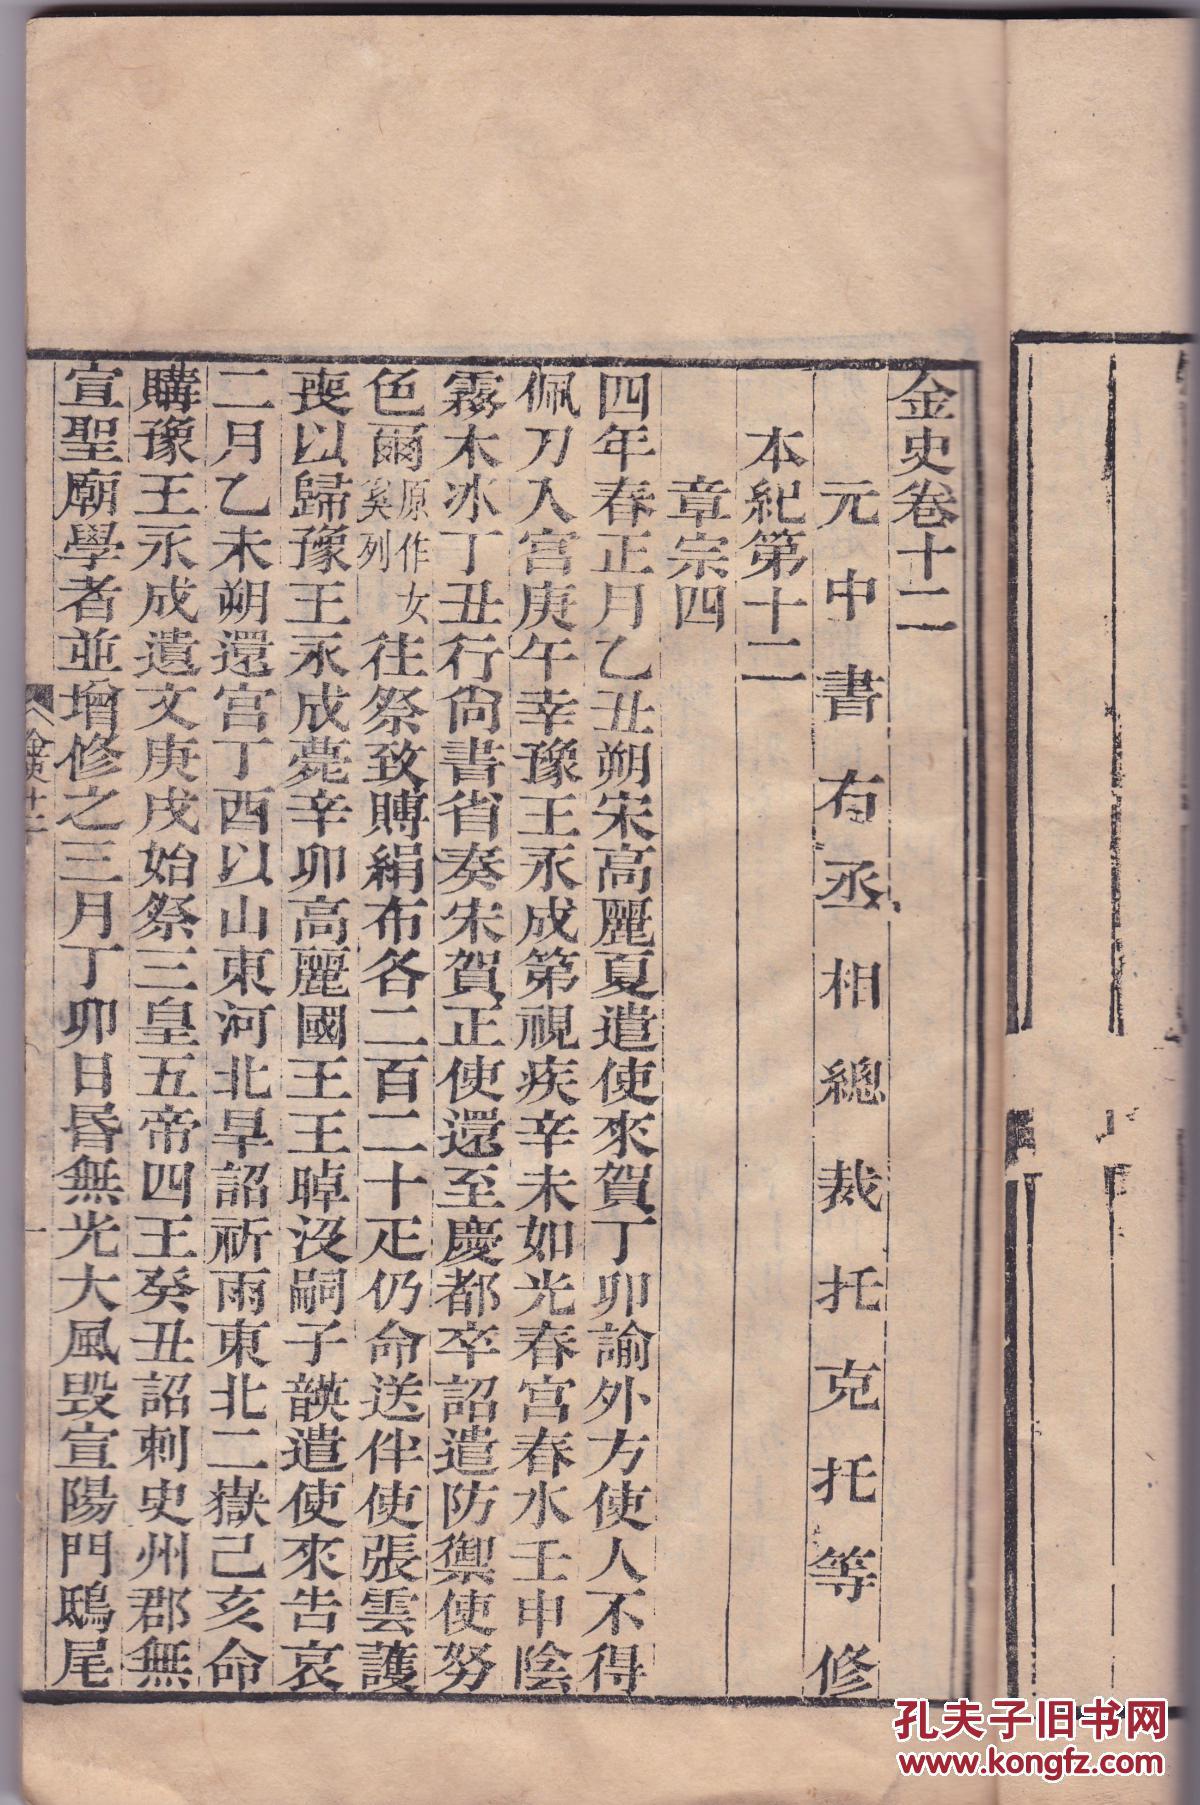 金史卷十二
元中書右丞相總裁托克托等修
本紀第十二
章宗四
四年春正月乙丑朔宋高麗夏遣使來賀丁卯諭外方使人不得
佩刀入宮庚午幸豫王永成第視疾辛未如光春宮春水壬申陰
霧木冰丁丑行尙書省奏宋賀正使還至慶都卒詔遣防禦使努
色爾原作女奚列往祭致賻絹布各二百二十疋仍命送伴使張雲護
喪以歸豫王永成薨辛卯高麗國王王晫沒嗣子韺遣使來告哀
二月乙未朔還宮丁酉以山東河北旱詔祈雨東北二嶽己亥命
購豫王永成遺文庚戌始祭三皇五帝四王癸丑詔刺史州郡無
宣聖廟學者並增修之三月丁卯日昏無光大風毀宣陽門鴟尾
金史卷十二
一
孔夫子旧书网
www.kongfz.com